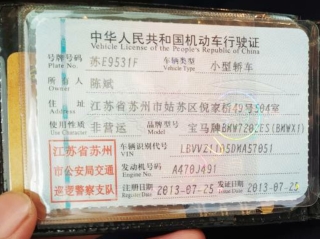 中华人民共和国机动车行驶证
Vehicle License of the People's Republic of China
号牌号码 苏E9531F 车辆类型 小型轿车
Plate No. Vehicle Type
所有人 陈斌
Owner
住址 江苏省苏州市姑苏区倪家桥49号504室
Address
使用性质 非营运 品牌型号 宝马牌
Use Character Model
江苏省苏州 车辆识别代号
VIN
市公安局交通 发动机号码 A470J491
Engine No.
巡逻警察支队 注册日期 2013-07-25 发证日期 2013-07-25
Register Date Issue Date